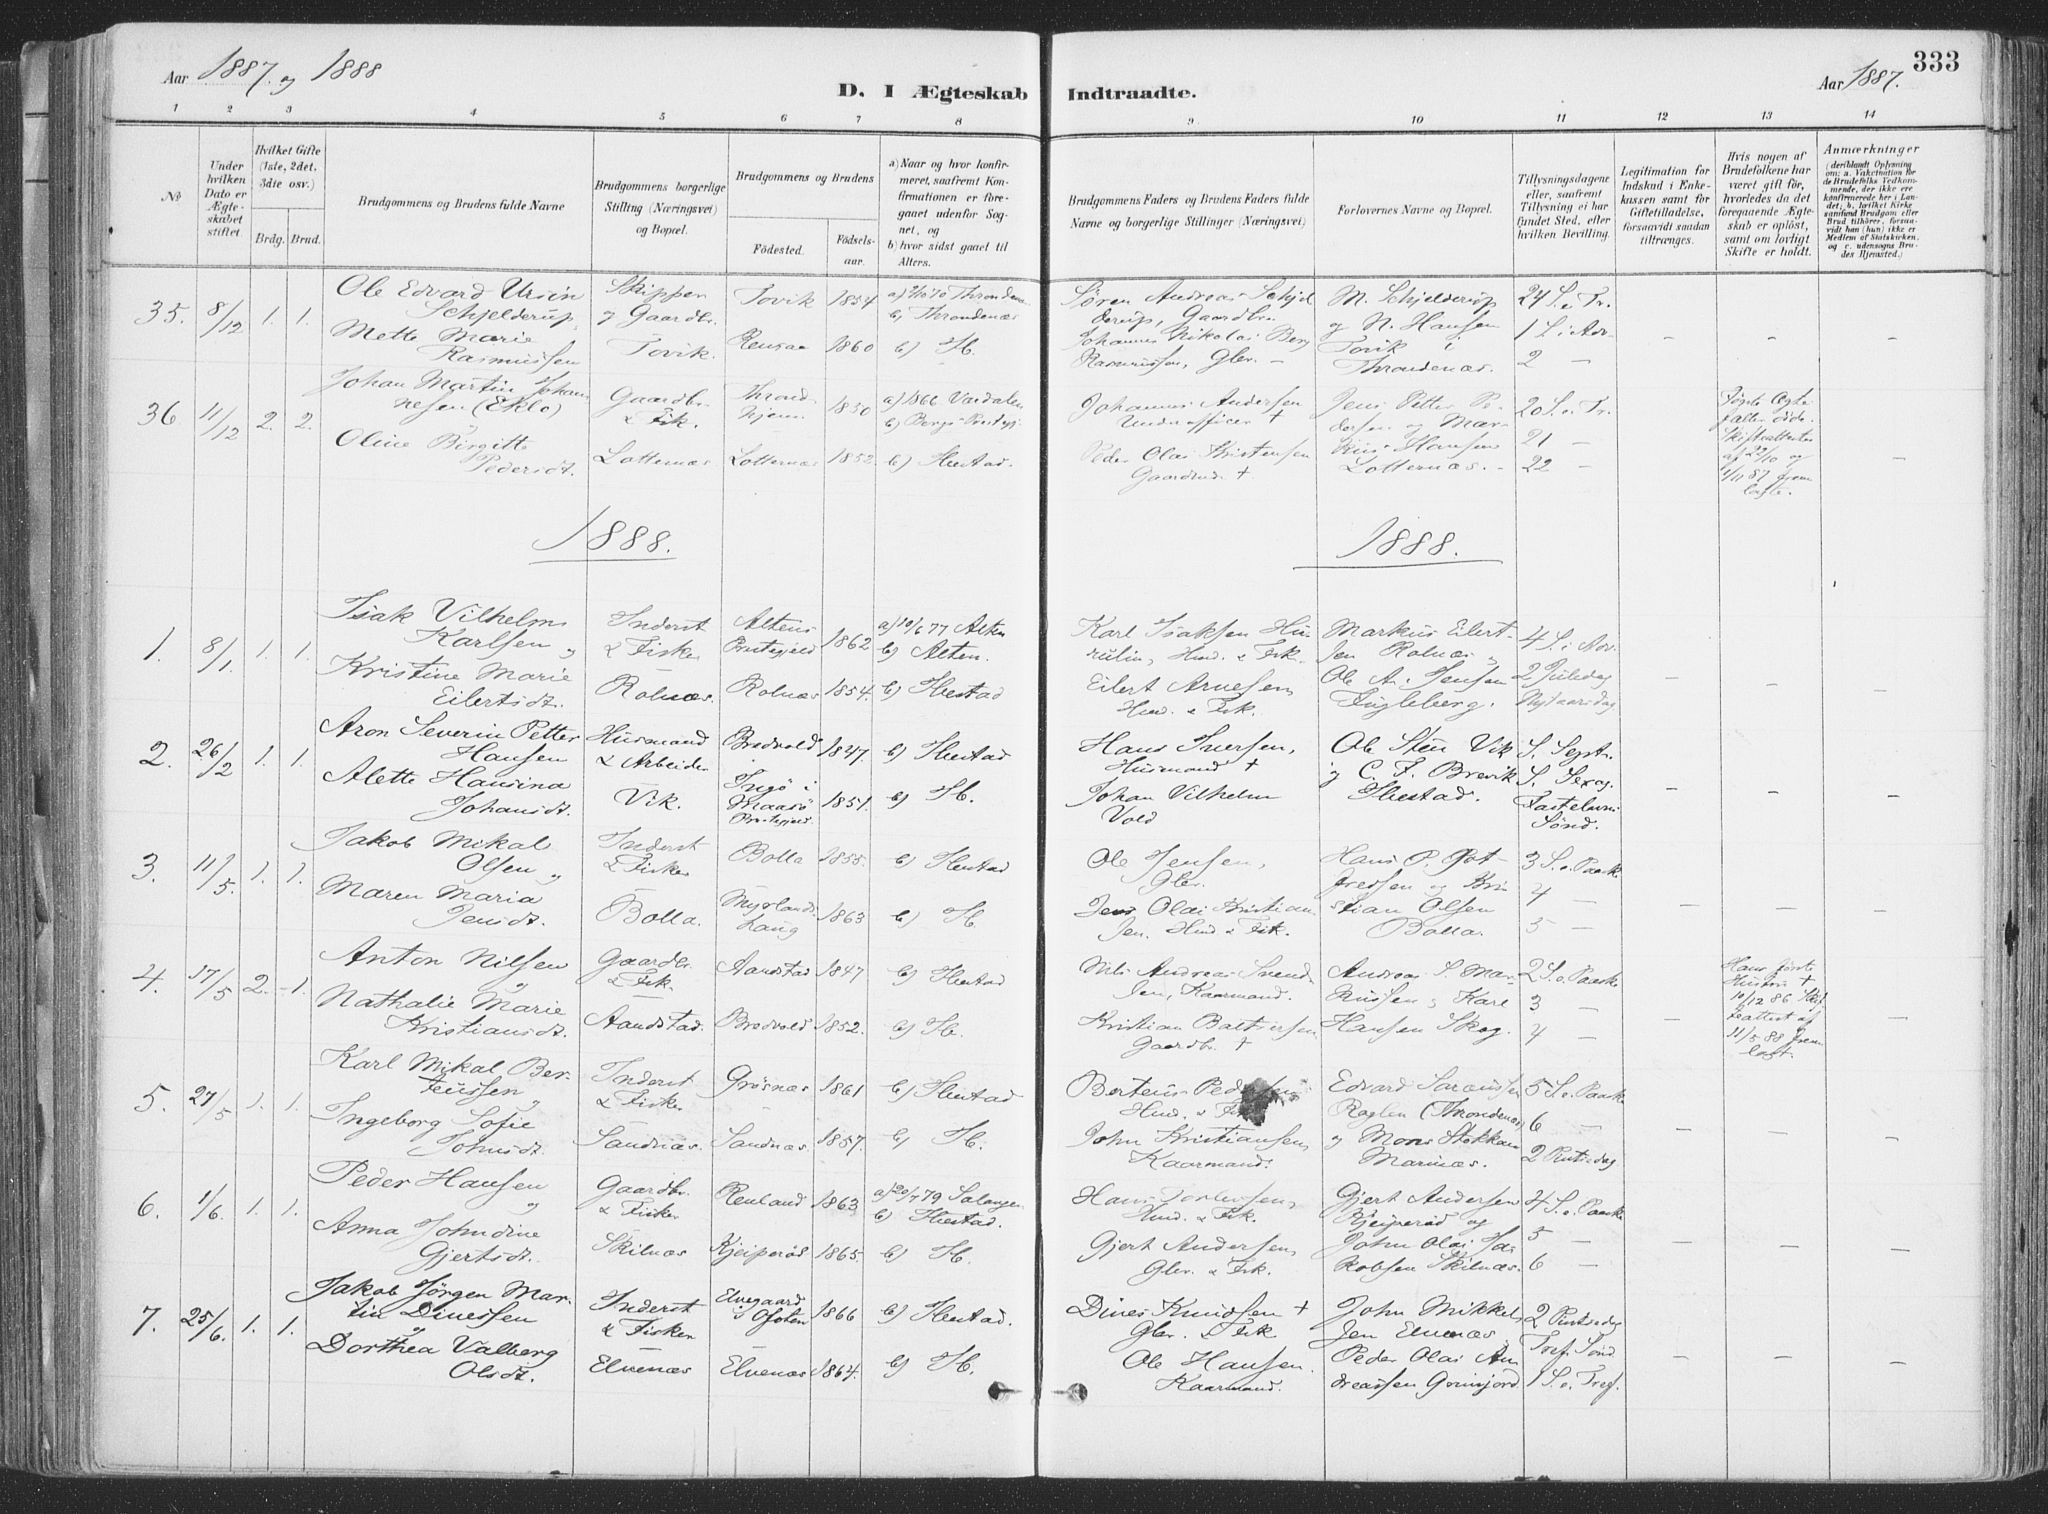 Aar 1887. og 1888
D. I Ægteskab Indtraadte.
Aar 1887. 333
1 2 3 4 5 6 7 8 9 10 11 12 13 14
№
Under hvilken Dato er Ægteskabet stiftet.
Hvilket Gifte (1ste, 2det, 3die osv.)
Brdg. Brud.
Brudgommens og Brudens fulde Navne
Brudgommens borgerlige Stilling (Næringsvei) og Bopæl.
Brudgommens og Brudens
Fødested.
Fødsels-aar.
a) Naar og hvor konfirmeret, saafremt Konfirmationen er foregaaet udenfor Sognet, og
b) hvor sidst gaaet til Alters.
Brudgommens Faders og Brudens Faders fulde Navne og borgerlige Stillinger (Næringsvei)
Forlovernes Navne og Bopæl.
Tillysningsdagene eller, saafremt Tillysning ei har fundet Sted, efter hvilken Bevilling.
Legitimation for Indskud i Enkekassen samt for Giftetilladelse, forsaavidt saadan tiltrænges.
Hvis nogen af Brudefolkene har været gift før, hvorledes da det foregaaende Ægteskab er opløst, samt om lovligt Skifte er holdt.
Anmærkninger
(deriblandt Oplysning om: a. Vakcination for de Brudefolks Vedkommende, der ikke ere konfirmerede her i Landet; b. hvilket Kirkesamfund Brudgom eller Brud tilhører, forsaavidt han (hun) ikke er Medlem af Statskirken, og c. udensogns Brudes Hjemsted.)
35. 8/12 1. 1.
Ole Edvard Ursin
Schjelderup,
Mette Marie
Rasmussen
Skipper
og Gaardbr.
Tovik.
Tovik 1854
Rensaa 1860
b) Throndenæs
b) H.
Søren Andreas Schjel
derup, Gaardbr.
Johannes Nikolai Berg
Rasmussen, Gbr. –
M. Schjelderup
og N. Hansen
Tovik i
Throndenæs.
24 S. e. Tr.
1 S. i Adv.
2 –
– – –
36 11/12 2. 2.
Johan Martin Johan
nesen (Eklo)
Oline Birgitte
Pedersdt.
Gaardbr.
& Fisk.
Lotternæs
Thrond
hjem 1850
Lotternæs 1852.
a) 1866 Værdalen
b) Bergs Prestegj.
b) Ibestad.
Johannes Andersen
Underofficer †
Peder Olai Kristensen
Gaardmd. †
Jens Petter Pe
dersen og Mar
kus Hansen
Lotternæs. –
20 S. e. Tr.
21 –
22 –
Første Ægte
fæller døde.
Skifteattester
af 29/10 og
1/11 87 frem
lagte.
–
1888. 1888.
1. 8/1. 1. 1.
Isak Vilhelm
Karlsen og
Kristine Marie
Eilertsdt.
Inderst
& Fisker
Rolnæs.
Altens
Prestegjeld 1862
Rolnæs 1854.
a) 10/6 77 Alten
b) Alten.
b) Ibestad
Karl Isaksen Hu
rulin, Husd. & Fisk.
Eilert Arnesen,
Husd. & Fisk.
Markus Eilert-
sen Rolnæs og
Ole A. Jensen
Fugleberg.
4 S. i Adv.
2 Juledag
Nytaarsdag
– – –
2. 26/2 1. 1.
Aron Severin Petter
Hansen
Alette Hansina
Johansdt.
Husmand
& Arbeider
Vik.
Brodvold 1847.
Ingø i
Maasø
Prestegjeld. 1851.
b) Ibestad
b) H.
Hans Iversen,
Husmand †
Johan Vilhelm
Vold
Ole Steen Vik
og C. F. Brevik
Ibestad.
S. Sept.
S. Sexag.
Fastelavns
Sønd.
– – –
3. 11/5. 1. 1.
Jakob Mikal
Olsen og
Maren Maria
Jensdt.
Inderst
& Fisker
Bolla.
Bolla 1855.
Myrlands
haug 1863
b) Ibestad
b) H.
Ole Jensen,
Gbr.
Jens Olai Kristian
sen. Husd. & Fisk.
Hans P. Got-
fredsen og Kri
stian Olsen
Bolla.
3 S. e. Paaske
4 –
5 –
– – –
4. 17/5 2. 1.
Anton Nilsen
og
Nathalie Marie
Kristiansdt.
Gaardbr.
& Fisk.
Aandstad.
Aandstad 1847
Brodvold 1852.
b) Ibestad
b) H.
Nils Andreas Svend
sen, Kaarmand.
Kristian Baltsersen
Gaardbr. †
Andreas S. Mar-
kussen og Karl
Hansen Skog.
2 S. e. Paaske
3 –
4 –
Hans første
Hustru †
10/12 86 Skif
teattest af
11/5 88 frem
lagt.
– –
5. 27/5 1. 1.
Karl Mikal Ber-
teussen og
Ingeborg Sofie
Johnsdt.
Inderst
& Fisker
Sandnæs.
Grøsnæs 1861
Sandnæs 1857.
b) Ibestad
b) H.
Berteus Pedersen
Husd. & Fisk.
John Kristiansen,
Kaarmand.
Edvard
(Throndenæs)
og Mons Stokkan
Marinæs.
5 S. e. Paaske
6 –
2 Pintsedag
– – –
6. 1/6. 1. 1.
Peder Hansen
og
Anna Johndine
Gjertsdt.
Gaardbr.
& Fisker
Skilnæs
Renland 1863
Kjeiperød 1865.
a) 20/7 79 Salangen
b) Ibestad.
b) H.
Hans
Husd. & Fisk.
Gjert Andersen,
Gbr. & Fisk.
Gjert Andersen
Kjeiperød og
John Olai Ja-
kobsen Skilnæs.
4 S. e. Paaske
5 –
6 –
– – –
7. 25/6. 1. 1.
Jakob Jørgen Mar-
tin Dinessen
og
Dorthea Valberg
Olsdt.
Inderst
& Fisker
Elvenæs
Elvegaard
i Ofoten 1866
Elvenæs 1864.
b) Ibestad.
b) H.
Dines Knudsen †
Gbr. & Fisk
Ole Hansen.
Kaarmand.
John Mikkel
sen Elvenæs
Peder Olai An
dreassen Grinjord
2 Pintsedag
Tref. Sønd.
1 S. e. Tref.
– – –